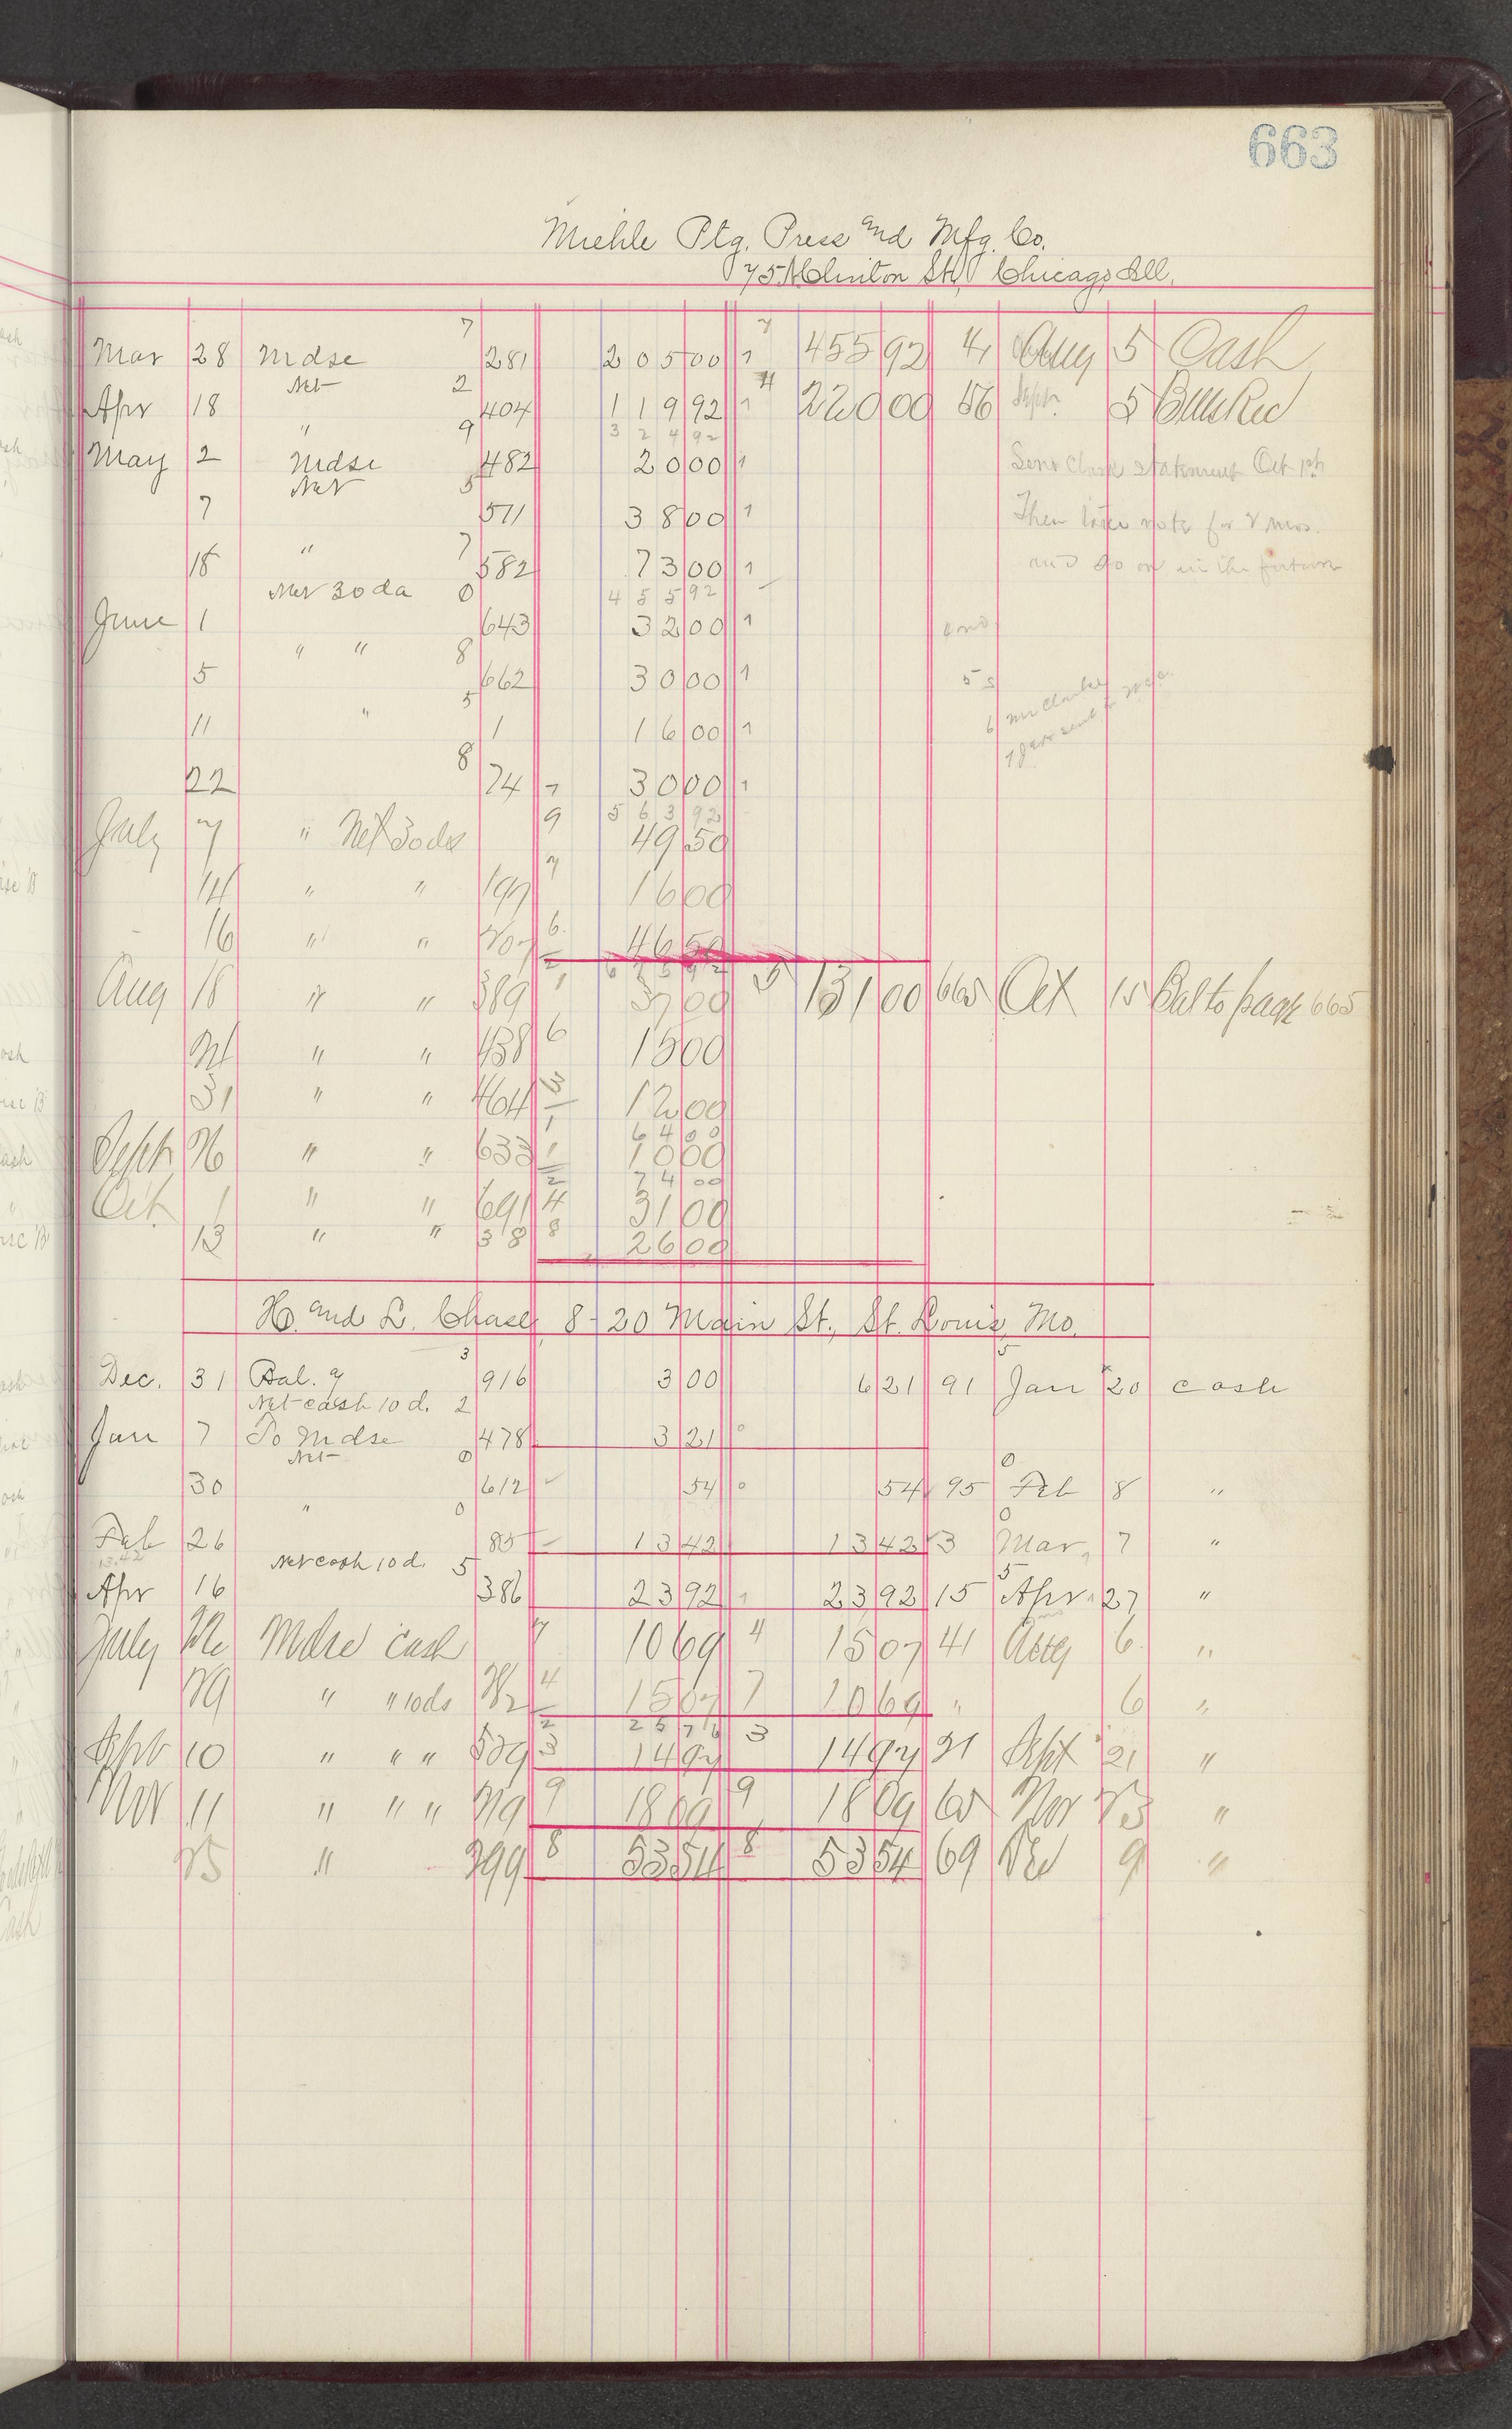 663
Miehle Ptg. Press and Mfg. Co.
75 N Clinton St., Chicago, Ill.
7 7
Mar 28 Mdse 281 205 00 1 455 92 41 Aug 5 Cash
Net 2 4
Apr 18 404 119 92 1 220 00 56 Sept. 5 Bills Rec
" 9 324 92
May 2 Mdse 482 20 00 1 Send Chas statement Oct 1st
Net 5
7 511 38 00 1 Then take note for 2 mos.
" 7
18 582 73 00 1 and so on in the future
Net 30 da 0 455 92
June 1 643 32 00 1
" " 8
5 662 30 00 1
5
11 " 1 16 00 1
8
22 74 7 30 00 1
9 563 92
July 7 " Net 30 ds 49 50
7
14 " " 197 16 00
16 " " 207 6 46 50
2 675 92
Aug 18 " " 389 1 37 00 5 131 00 665 Oct 15 Bal to page 665
24 " " 438 6 15 00
31 " " 464 3 12 00
1 64 00
Sept 26 " " 633 1 10 00
2 74 00
Oct 1 " " 691 4 31 00
13 " " 38 8 26 00
H. and L. Chase, 8-20 Main St., St. Louis, Mo.
3 5
Dec. 31 Bal. 9 916 3 00 6 21 91 Jan 20 cash
Net cash 10 d. 2
Jan 7 To Mdse 478 3 21 0
Net 0 0
30 612 54 0 54 95 Feb 8 "
" 0 0
Feb 26 85 13 42 13 42 3 Mar. 7 "
13.42 Net cash 10 d. 5 5
Apr 16 386 23 92 1 23 92 15 Apr. 27 "
July 22 Mdse cash 7 10 69 4 15 07 41 Aug 6 "
29 " " 10 ds 282 4 15 07 7 10 69 " 6 "
2 25 76
Sept 10 " " " 529 3 14 97 3 14 97 21 Sept 21 "
Nov 11 " " " 219 9 18 09 9 18 09 65 Nov 23 "
25 " 299 8 53 54 8 53 54 69 Dec 9 "